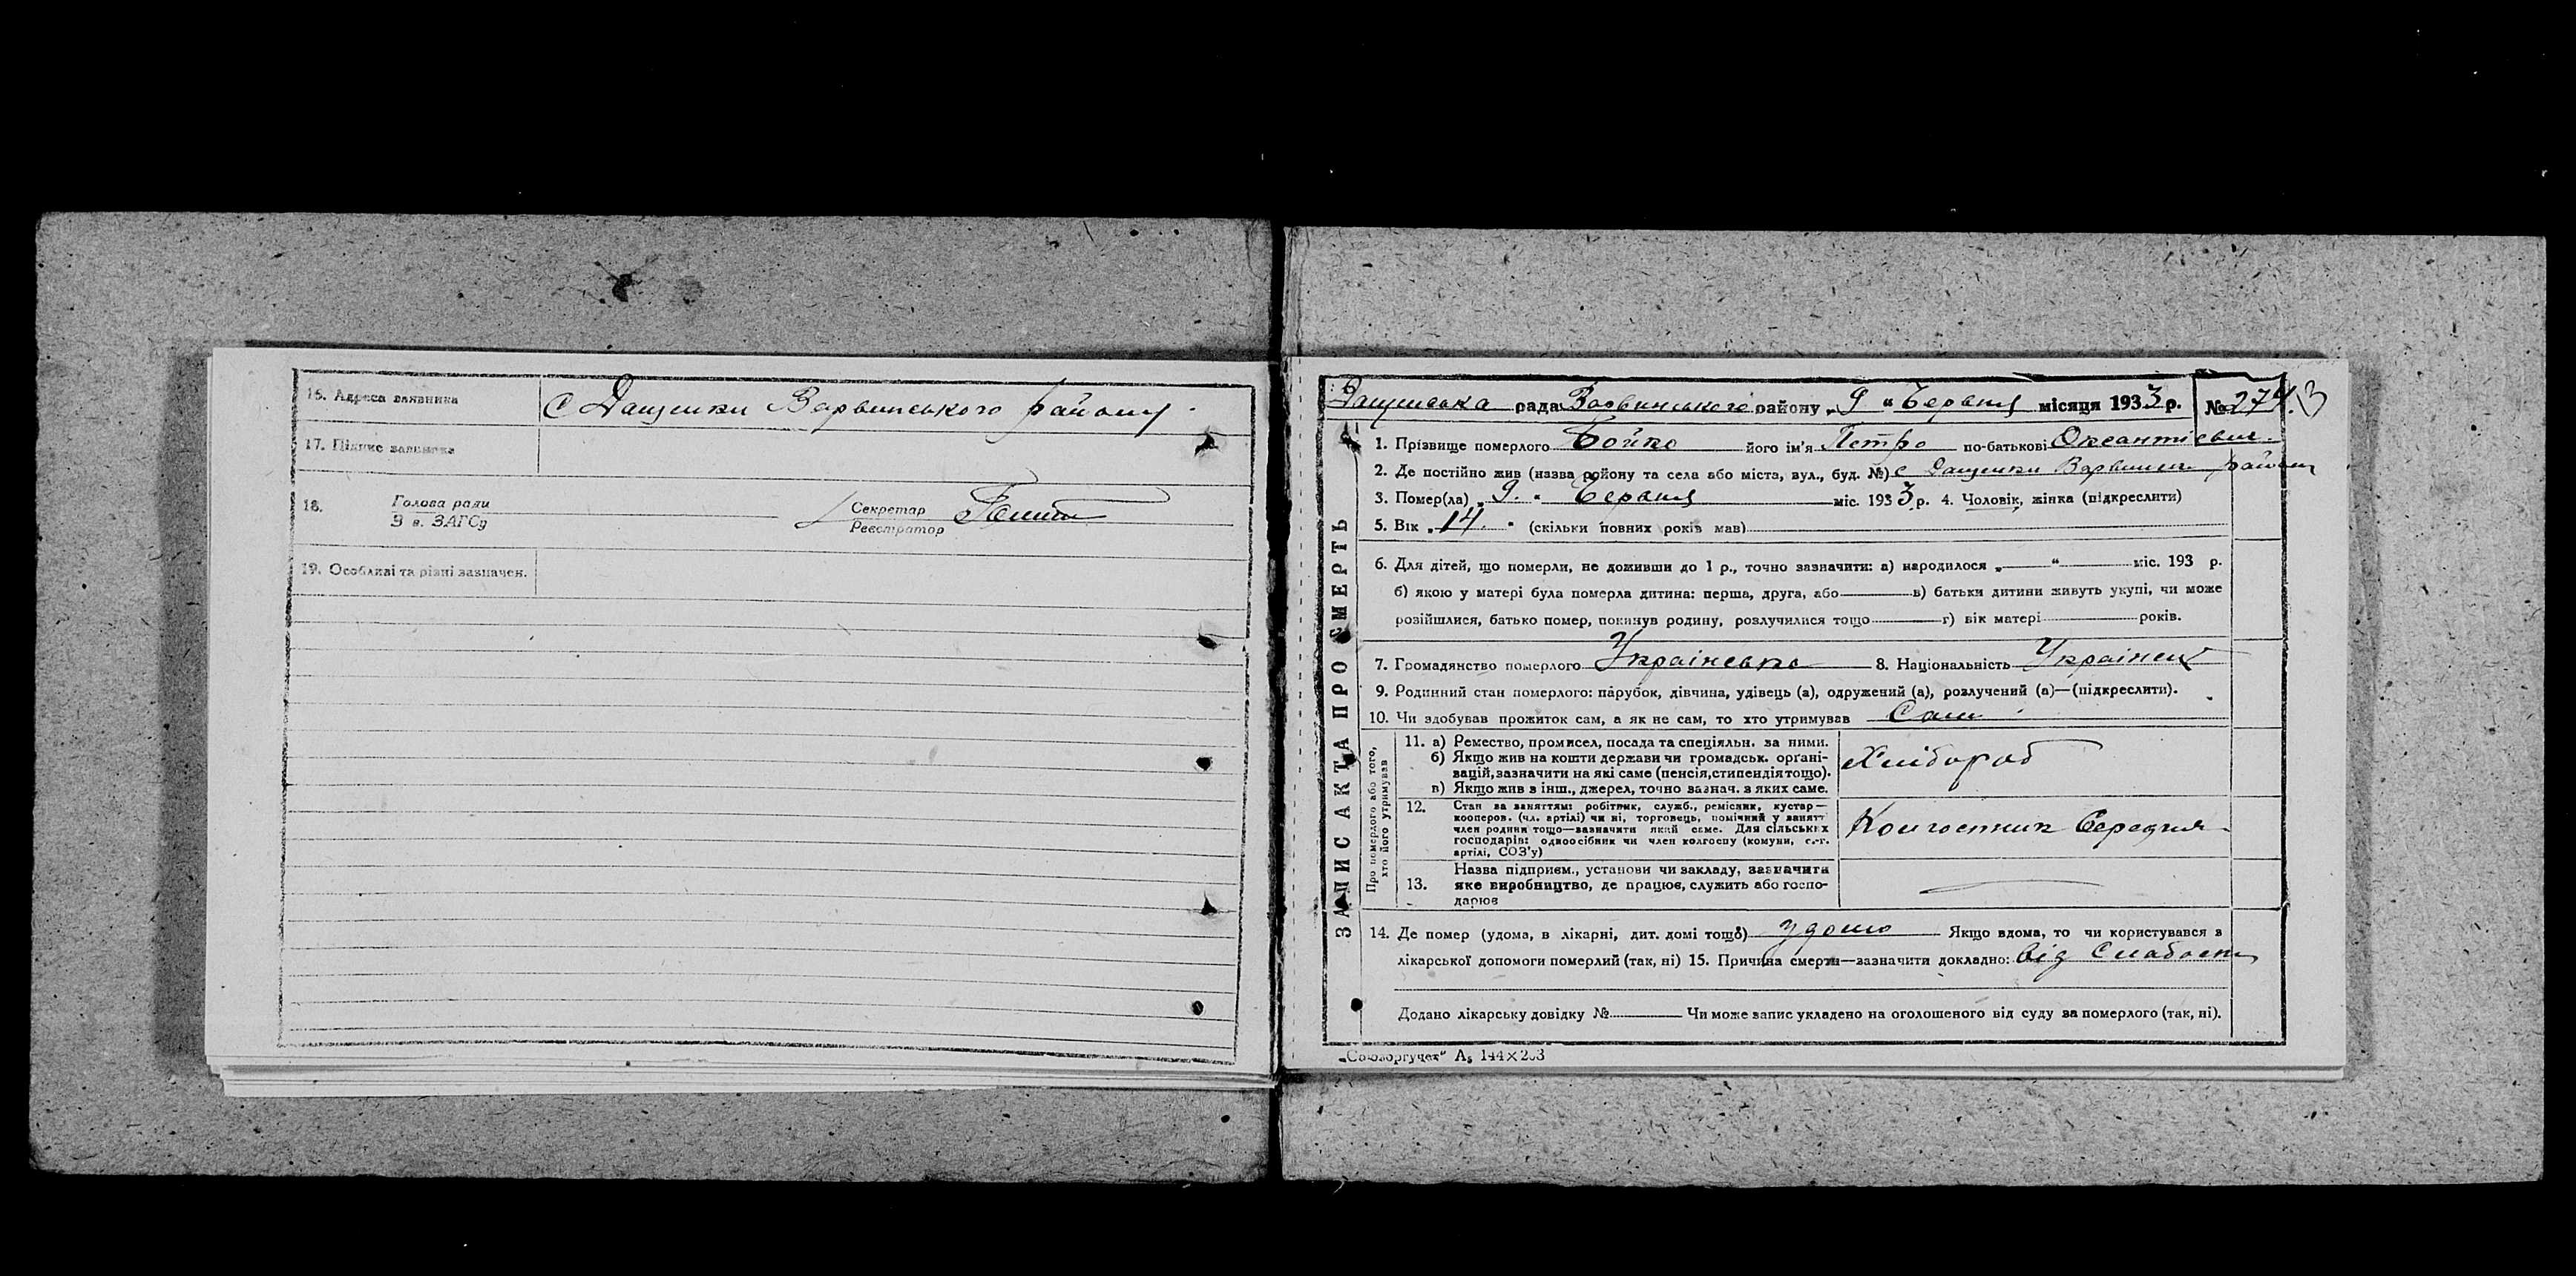 16. Адреса заявника с Дащенки Варвинського району.
17. Підпис заявника
18. Голова ради
З в. ЗАГСу
Секретар
Реєстратор
19. Особливі та різні зазначен.
ЗАПИС АКТА ПРО СМЕРТЬ
Дащенська рада Варвинського району „9“ Червня місяця 1933 р. № 274.
1. Прізвище померлого Бойко його ім'я Петро по-батькові
2. Де постійно жив (назва району та села або міста, вул., буд. №) с Дащенки Варвинськ района
3. Помер(ла) „9.“ Червня міс. 1933 р. 4. Чоловік, жінка (підкреслити)
5. Вік „14.“ (скільки повних років мав)
6. Для дітей, що померли, не доживши до 1 р., точно зазначити: а) народилося „ “ міс. 193 р.
б) якою у матері була померла дитина: перша, друга, або в) батьки дитини живуть укупі, чи може
розійшлися, батько помер, покинув родину, розлучилися тощо г) вік матері років.
7. Громадянство померлого Українсько 8. Національність Українец
9. Родинний стан померлого: парубок, дівчина, удівець (а), одружений (а), розлучений (а)—(підкреслити).
10. Чи здобував прожиток сам, а як не сам, то хто утримував Сам
Про померлого або того,
хто його утримував
11. а) Ремество, промисел, посада та спеціяльн. за ними.
б) Якщо жив на кошти держави чи громадськ. органі-
зацій, зазначити на які саме (пенсія, стипендія тощо).
в) Якщо жив з інш., джерел, точно зазнач. з яких саме.
Хлібороб
12. Стан за заняттям: робітник, служб., ремісник, кустар—
кооперов. (чл. артілі) чи ні, торговець, помічний у занятт
член родини тощо—зазначити який саме. Для сільських
господарів: одноосібник чи член колгоспу (комуни, с.-г.
артілі, СОЗ'у)
Колгоспник Середняк
13. Назва підприєм., установи чи закладу, зазначити
яке виробництво, де працює, служить або госпо-
дарює
14. Де помер (удома, в лікарні, дит. домі тощо) удома Якщо вдома, то чи користувався з
лікарської допомоги померлий (так, ні) 15. Причина смерти—зазначити докладно: від Слабости
Додано лікарську довідку № Чи може запис укладено на оголошеного від суду за померлого (так, ні).
„Союзоргучет“ А₅ 144×203